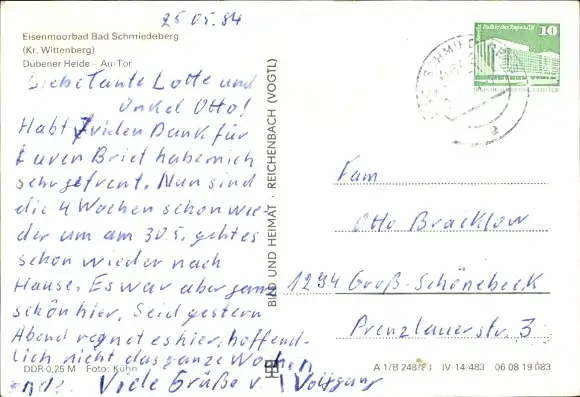 25.05.84
Eisenmoorbad Bad Schmiedeberg
(Kr. Wittenberg)
Dübener Heide – Au-Tor
Liebe Tante Lotte und
Onkel Otto!
Habt vielen Dank für
Euren Brief habe mich
sehr gefreut. Nun sind
die 4 Wochen schon wie-
der um am 30.5. geht es
schon wieder nach
Hause. Es war aber ganz
schön hier. Seid gestern
Abend regnet es hier, hoffend-
lich nicht das ganze Wochen
ende. Viele Grüße v. Wolfgang
DDR 0,25 M Foto: Kühn
BILD UND HEIMAT · REICHENBACH (VOGTL)
Palast der Republik
10
Fam
Otto Bracklow
1294 Groß-Schönebeck
Prenzlauerstr. 3
A 1/B 248/83 IV-14-483 06 08 19 083